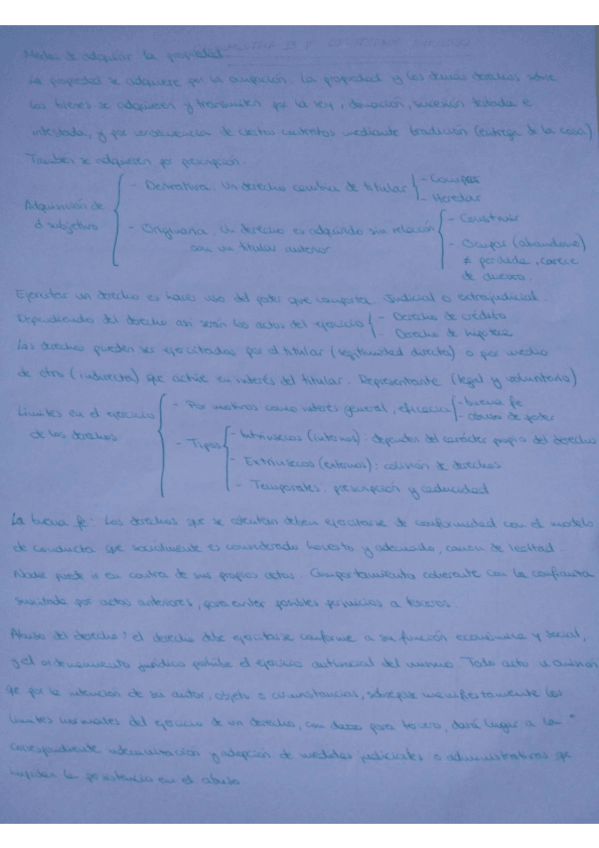 Modos de adquirir la propiedad
La propiedad se adquiere por la ocupación. La propiedad y los demás derechos sobre
los bienes se adquieren y transmiten por la ley, donación, sucesión testada e
intestada, y por consecuencia de ciertos contratos mediante tradición (entrega de la cosa)
También se adquieren por prescripción.
Adquisición de d subjetivo
- Derivativa. Un derecho cambia de titular
- Comprar
- Heredar
- Originaria. Un derecho es adquirido sin relación con un titular anterior
- Construir
- Ocupar (abandono) ≠ perdida, carece de
Ejercitar un derecho es hacer uso del poder que comporta. Judicial o extrajudicial.
Dependiendo del derecho así serán los actos del ejercicio
- Derecho de crédito
- Derecho de hipoteca
Los derechos pueden ser ejercitados por el titular (legitimidad directa) o por medio
de otro (indirecta) que actúe en interés del titular. Representante (legal y voluntario)
Límites en el ejercicio de los derechos
- Por motivos como interés general, eficacia
- buena fe
- abuso de poder
- Tipos
- Intrínsecos (internos): dependen del carácter propio del derecho
- Extrínsecos (externos): colisión de derechos
- Temporales. prescripción y caducidad
La buena fe: Los derechos que se ejercitan deben ejercitarse de conformidad con el modelo
de conducta que socialmente es considerado honesto y adecuado, canon de lealtad
Nadie puede ir en contra de sus propios actos. Comportamiento coherente con la confianza
suscitada por actos anteriores, para evitar posibles perjuicios a terceros.
Abuso del derecho: el derecho debe ejercitarse conforme a su función económica y social,
y el ordenamiento jurídico prohíbe el ejercicio antisocial del mismo. Todo acto u omisión
que por la intención de su autor, objeto o circunstancias, sobrepase manifiestamente los
límites normales del ejercicio de un derecho, con daño para tercero, dará lugar a la
correspondiente indemnización y adopción de medidas judiciales o administrativas que
impidan la persistencia en el abuso.